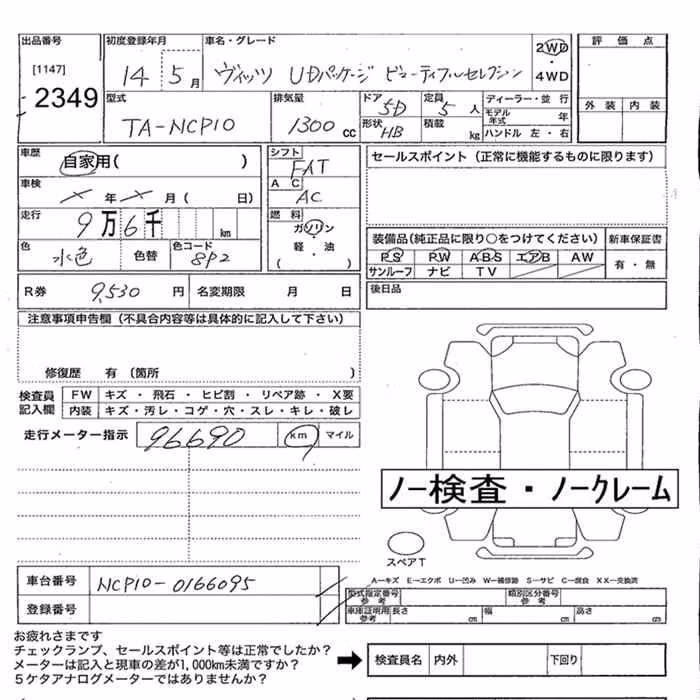 出品番号 初度登録年月 車名・グレード 2WD 評価点
[1147] 14 5月 ヴィッツ UDパッケージ ビューティフルセレクション 4WD
2349 型式 排気量 ドア 5D 定員 5人 ディーラー・並行 外装 内装
TA-NCP10 1300cc 形状 HB 積載 kg モデル年式 年
ハンドル 左・右
車歴 自家用( ) シフト FAT セールスポイント(正常に機能するものに限ります)
車検 ×年×月( 日) AC AC
走行 9万6千 km 燃料 ガソリン 装備品(純正品に限り○をつけてください) 新車保証書
色 水色 色替 色コード 8P2 軽・油 PS PW ABS エアB AW 有・無
サンルーフ ナビ TV
R券 9,530円 名変期限 月 日 後日品
注意事項申告欄(不具合内容等は具体的に記入して下さい)
修復歴 有(箇所 )
検査員 FW キズ・飛石・ヒビ割・リペア跡・X要
記入欄 内装 キズ・汚レ・コゲ・穴・スレ・キレ・破レ
走行メーター指示 96690 km マイル
ノー検査・ノークレーム
スペアT
車台番号 NCP10-0166095 A-キズ E-エクボ U-凹み W-補修跡 S-サビ C-腐食 XX-交換済
登録番号 型式指定番号参考 類別区分番号参考
車庫証明用参考 長さ cm 幅 cm 高さ cm
お疲れさまです
チェックランプ、セールスポイント等は正常でしたか?
メーターは記入と現車の差が1,000km未満ですか? 検査員名 内外 下回り
5ケタアナログメーターではありませんか?